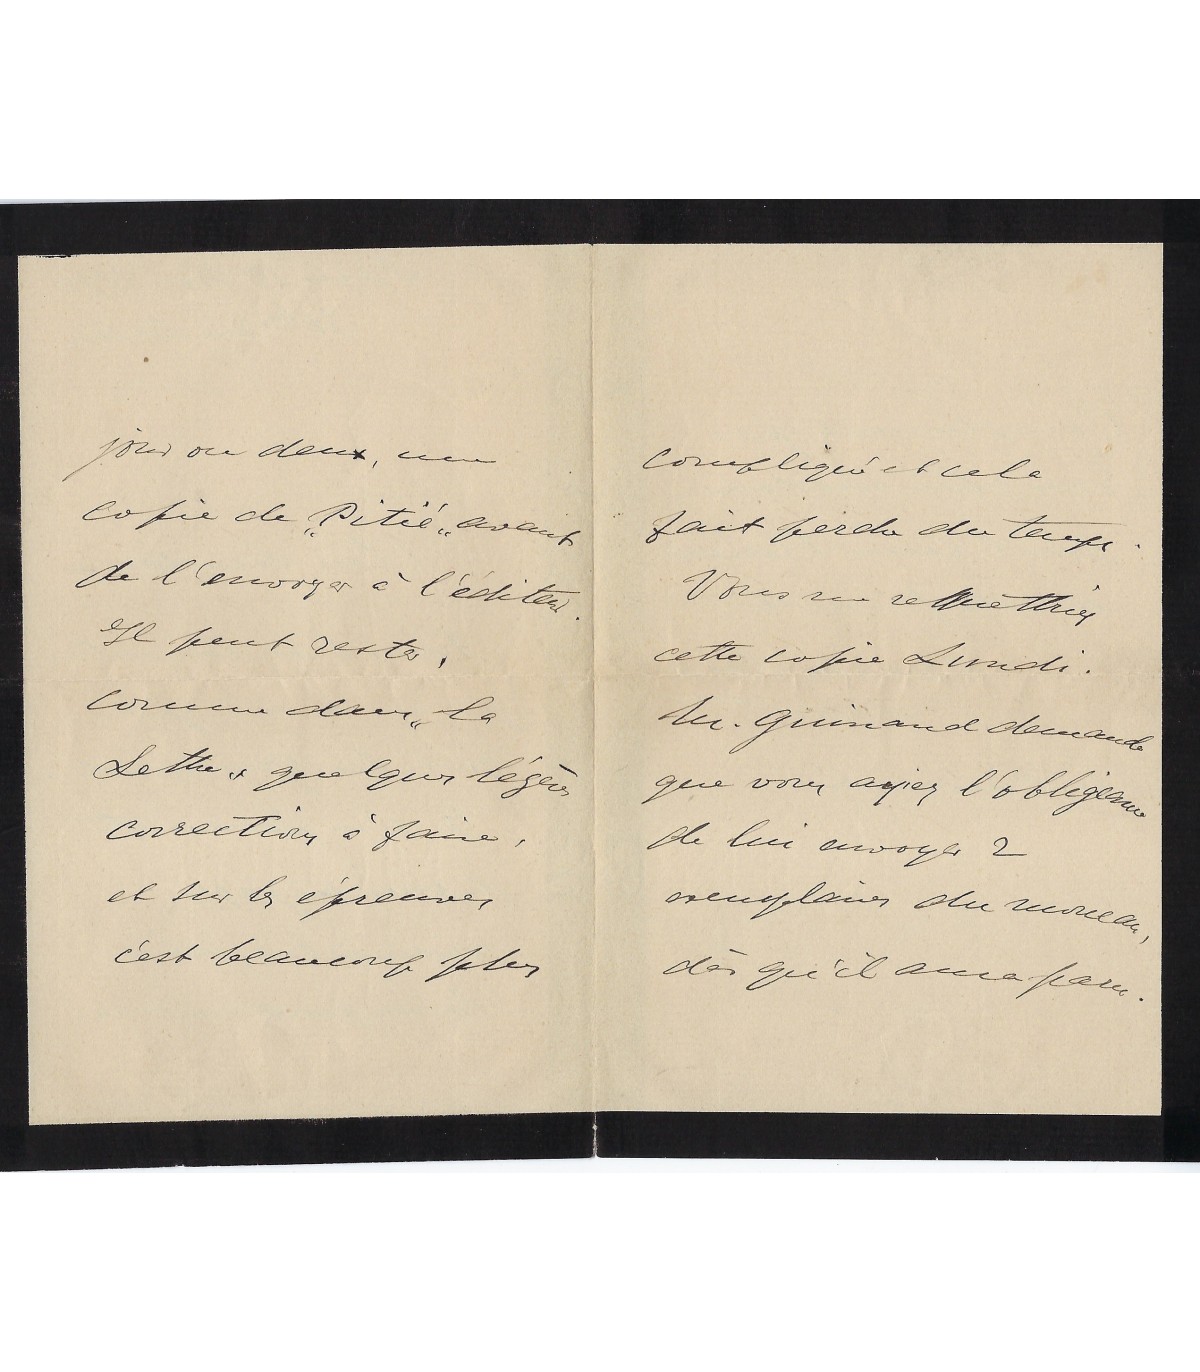 jour ou deux, une
copie de „Pitié„ avant
de l'envoyer à l'éditeur.
Il peut rester,
comme dans „la
Lettre„ quelques légères
corrections à faire,
et sur les épreuves
c'est beaucoup plus
compliqué et cela
fait perdre du temps.
Vous me remettriez
cette copie Lundi.
M. Guinand demande
que vous ayiez l'obligeance
de lui envoyer 2
exemplaires du morceau,
dès qu'il aura paru.